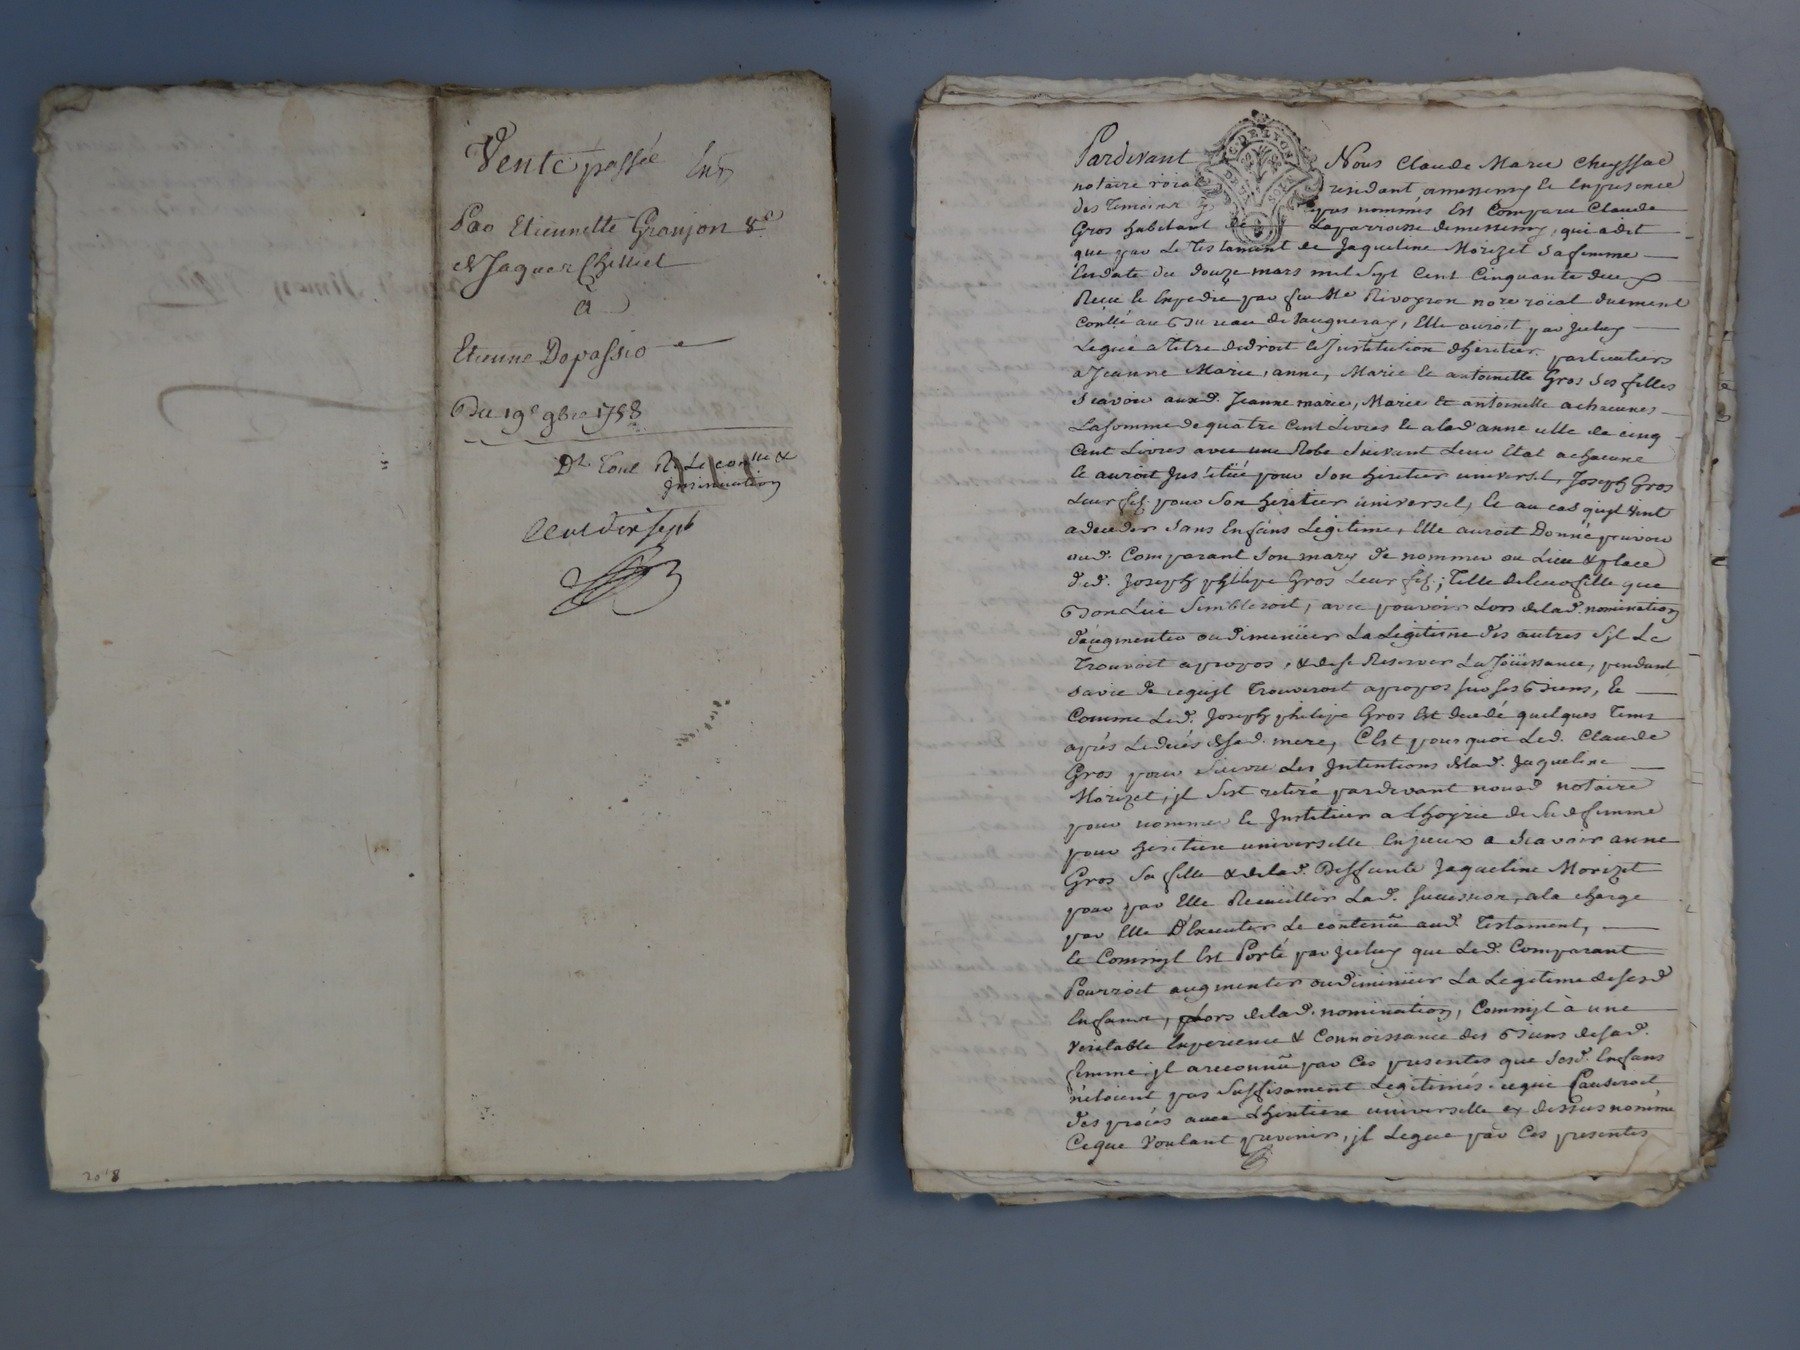 Vente passée
Par Etiennette Gronjon &
& Jaques Chilliet
à
Etienne Dopassio
Du 19e 9bre 1758
Dt. tout le conlle &
insinuation
Pardevant Nous Claude Marie Cheyssac
notaire roial residant amessimy & En presence
des Temoins nommés Est Comparu Claude
Gros habitant de Laparroisse demessimy, qui a dit
que par Le Testament de Jaqueline Morizet Safemme
En date du douze mars mil Sept Cent Cinquante deux
Recu & Expedié par feu Me Rivoyron nore roial duement
Conllé au Bureau de Vaugneray, Elle auroit par Jceluy
Legué a Titre de droit & Jnstitution dheritier particuliers
a Jeanne Marie, anne, Marie & antoinette Gros Ses filles
Scavoir auxd. Jeanne marie, Marie & antoinette achacunes
La Somme de quatre Cent Livres & a lad anne celle de cinq
Cent Livres avec une Robe Suivant Leur Etat achacune
& auroit Justitüé pour Son heritier universel, Joseph Gros
Leur fil pour Son heritier universel, & au cas quyl Vint
a deceder Sans Enfans Legitime, Elle auroit Donné pouvoir
aud. Comparant Son mary de nommer au Lieu & place
dud. Joseph philipe Gros Leur fil; Telle deleur fille que
Bon Lui Sembleroit, avec pouvoir Lors delad. nomination
d'augmenter ou dimenüer La Legitime des autres Syl Le
Trouvoit apropos, & de se Reserver La Jöüissance, pendant
Savie de cequyl Trouveroit apropos sur ses Biens, &
Comme Led. Joseph philipe Gros Est decedé quelques Tems
après Ledecés desad. mere, C'Est pourquoi Led. Claude
Gros pour Suivre Les Jntentions delad. Jaqueline
Morizet, jl Sest retiré pardevant nousd notaire
pour nommer & Jnstituer a Lhoyrie de Sad femme
pour heritiere universelle En jceux a Scavoir anne
Gros Sa fille & delad. Deffunte Jaqueline Morizet
pour par Elle Recueillir Lad. Succession, ala charge
par Elle D'Executer Le contenû aud Testament,
& Commyl Est Porté par Jceluy que Led. Comparant
Pourroit augmenter oudiminüer La Legitime desesd
Enfans, lors delad. nomination, Commyl à une
Veritable Experience & Connoissance des Biens desad.
femme, jl areconnû par Ces presentes que Sesd. Enfans
nétoient pas Suffisament Legitimés cequi Causeroit
des procés avec Lheritiere universelle cy dessus nommé
Ceque Voulant prevenir, jl Legue par Ces presentes